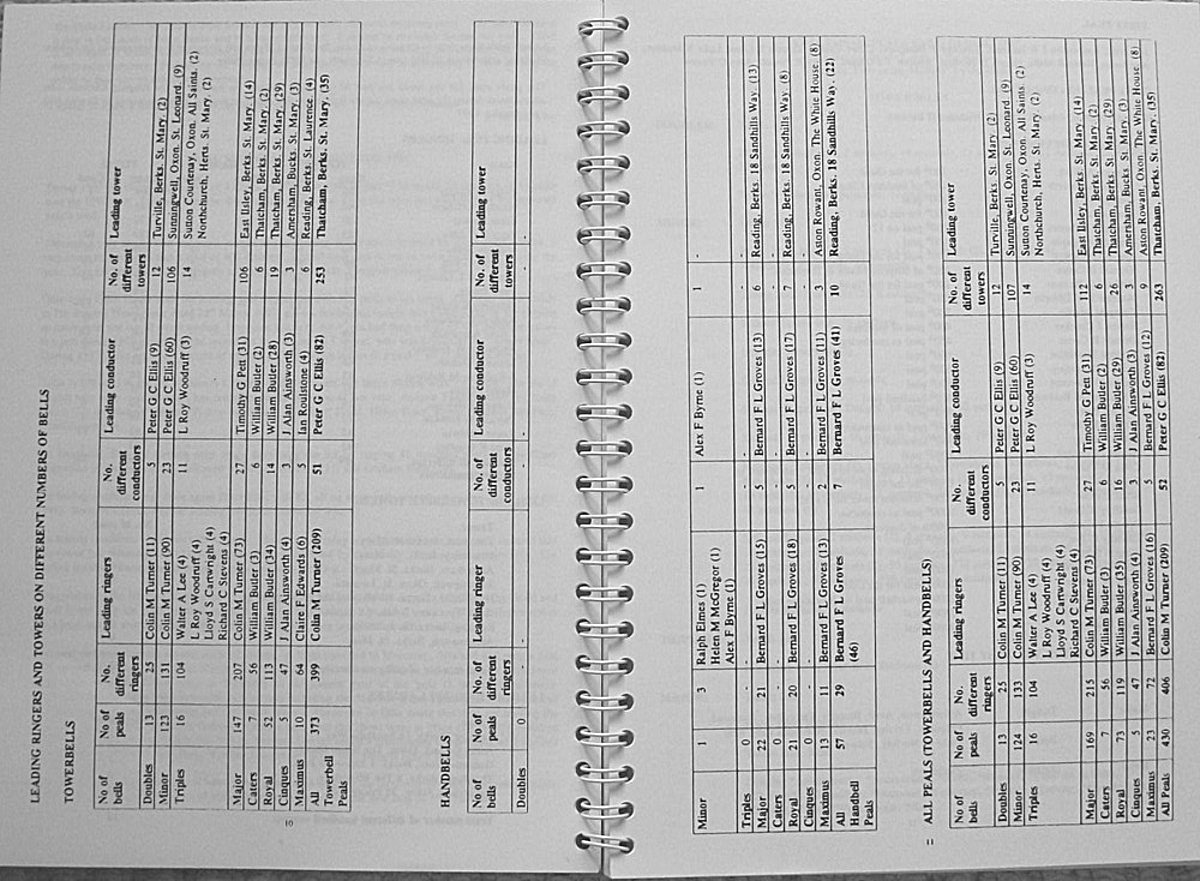 LEADING RINGERS AND TOWERS ON DIFFERENT NUMBERS OF BELLS
TOWERBELLS
No of bells | No of peals | No. different ringers | Leading ringers | No. different conductors | Leading conductor | No. of different towers | Leading tower
Doubles | 13 | 25 | Colin M Turner (11) | 5 | Peter G C Ellis (9) | 12 | Turville, Berks. St. Mary. (2)
Minor | 123 | 131 | Colin M Turner (90) | 23 | Peter G C Ellis (60) | 106 | Sunningwell, Oxon. St. Leonard. (9)
Triples | 16 | 104 | Walter A Lee (4) | 11 | L Roy Woodruff (3) | 14 | Sutton Courtenay, Oxon. All Saints. (2)
L Roy Woodruff (4) | Northchurch, Herts. St. Mary. (2)
Lloyd S Cartwright (4)
Richard C Stevens (4)
Major | 147 | 207 | Colin M Turner (73) | 27 | Timothy G Pett (31) | 106 | East Ilsley, Berks. St. Mary. (14)
Caters | 7 | 56 | William Butler (3) | 6 | William Butler (2) | 6 | Thatcham, Berks. St. Mary. (2)
Royal | 52 | 113 | William Butler (34) | 14 | William Butler (28) | 19 | Thatcham, Berks. St. Mary. (29)
Cinques | 5 | 47 | J Alan Ainsworth (4) | 3 | J Alan Ainsworth (3) | 3 | Amersham, Bucks. St. Mary. (3)
Maximus | 10 | 64 | Claire F Edwards (6) | 5 | Ian Roulstone (4) | 6 | Reading, Berks. St. Laurence. (4)
All Towerbell Peals | 373 | 399 | Colin M Turner (209) | 51 | Peter G C Ellis (82) | 253 | Thatcham, Berks. St. Mary. (35)
HANDBELLS
No of bells | No of peals | No. different ringers | Leading ringer | No. of different conductors | Leading conductor | No. of different towers | Leading tower
Doubles | 0 | - | - | - | - | - | -
10
Minor | 1 | 3 | Ralph Elmes (1) | 1 | Alex F Byrne (1) | 1
Helen M McGregor (1)
Alex F Byrne (1)
Triples | 0 | - | - | - | - | - | -
Major | 22 | 21 | Bernard F L Groves (15) | 5 | Bernard F L Groves (13) | 6 | Reading, Berks. 18 Sandhills Way. (13)
Caters | 0 | - | - | - | - | - | -
Royal | 21 | 20 | Bernard F L Groves (18) | 5 | Bernard F L Groves (17) | 7 | Reading, Berks. 18 Sandhills Way. (8)
Cinques | 0 | - | - | - | - | - | -
Maximus | 13 | 11 | Bernard F L Groves (13) | 2 | Bernard F L Groves (11) | 3 | Aston Rowant, Oxon. The White House. (8)
All Handbell Peals | 57 | 29 | Bernard F L Groves (46) | 7 | Bernard F L Groves (41) | 10 | Reading, Berks. 18 Sandhills Way. (22)
ALL PEALS (TOWERBELLS AND HANDBELLS)
No of bells | No of peals | No. different ringers | Leading ringers | No. different conductors | Leading conductor | No. of different towers | Leading tower
Doubles | 13 | 25 | Colin M Turner (11) | 5 | Peter G C Ellis (9) | 12 | Turville, Berks. St. Mary. (2)
Minor | 124 | 133 | Colin M Turner (90) | 23 | Peter G C Ellis (60) | 107 | Sunningwell, Oxon. St. Leonard. (9)
Triples | 16 | 104 | Walter A Lee (4) | 11 | L Roy Woodruff (3) | 14 | Sutton Courtenay, Oxon. All Saints. (2)
L Roy Woodruff (4) | Northchurch, Herts. St. Mary. (2)
Lloyd S Cartwright (4)
Richard C Stevens (4)
Major | 169 | 215 | Colin M Turner (73) | 27 | Timothy G Pett (31) | 112 | East Ilsley, Berks. St. Mary. (14)
Caters | 7 | 56 | William Butler (3) | 6 | William Butler (2) | 6 | Thatcham, Berks. St. Mary. (2)
Royal | 73 | 119 | William Butler (35) | 16 | William Butler (29) | 26 | Thatcham, Berks. St. Mary. (29)
Cinques | 5 | 47 | J Alan Ainsworth (4) | 3 | J Alan Ainsworth (3) | 3 | Amersham, Bucks. St. Mary. (3)
Maximus | 23 | 72 | Bernard F L Groves (16) | 5 | Bernard F L Groves (12) | 9 | Aston Rowant, Oxon. The White House. (8)
All Peals | 430 | 406 | Colin M Turner (209) | 52 | Peter G C Ellis (82) | 263 | Thatcham, Berks. St. Mary. (35)
11